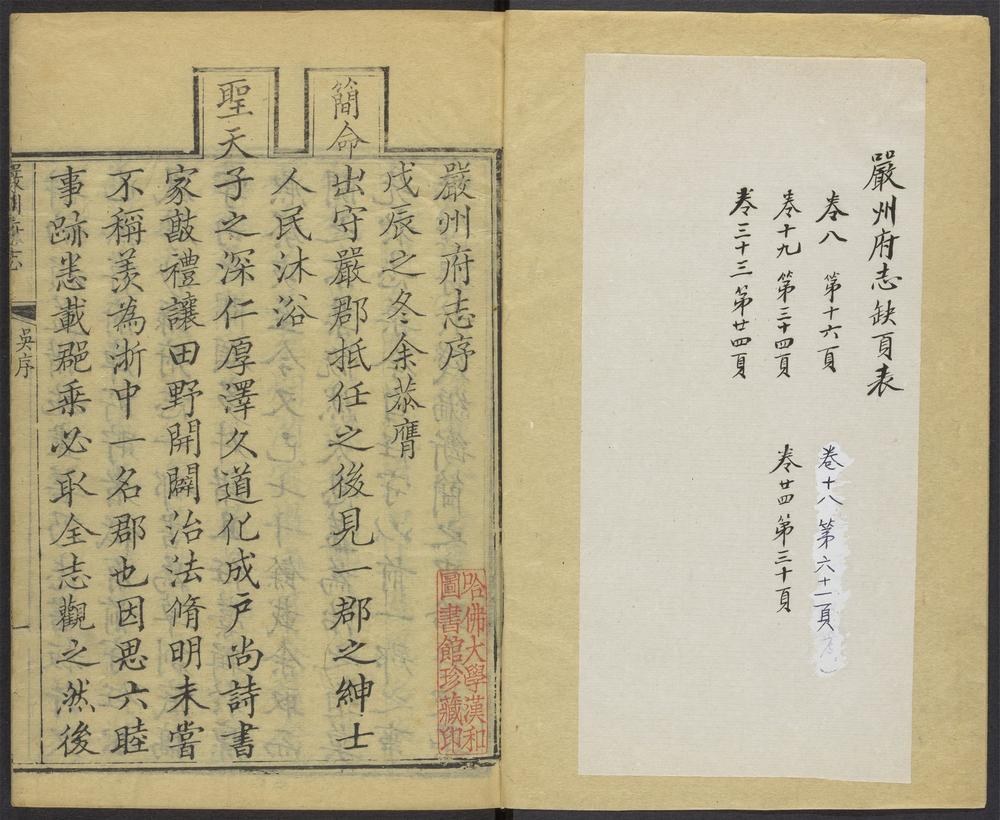 嚴州府志缺頁表
卷八 第十六頁
卷十八 第六十一頁
卷十九 第三十四頁
卷廿四 第三十頁
卷三十三 第廿四頁
嚴州府志序
戊辰之冬余恭膺
簡命出守嚴郡抵任之後見一郡之紳士
人民沐浴
聖天子之深仁厚澤久道化成戶尚詩書
家敦禮讓田野開闢治法脩明未嘗
不稱羨為浙中一名郡也因思六睦
事跡悉載郡乘必取全志觀之然後
吳序
哈佛大學漢和
圖書館珍藏印